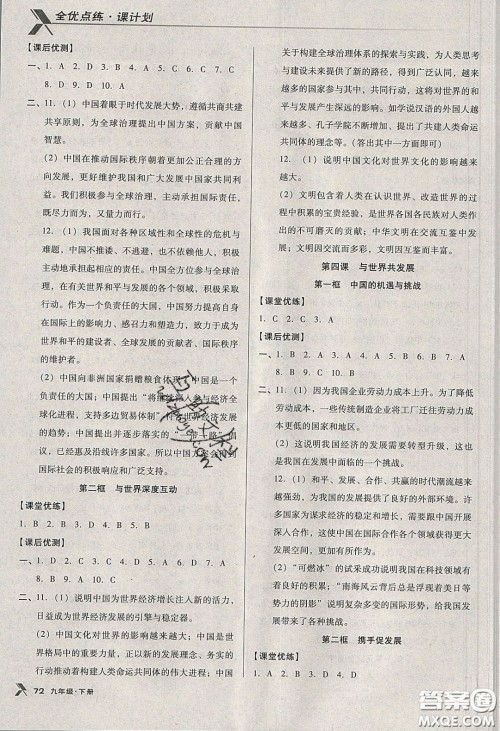 全优点练·课计划
【课后优测】
一、1. A 2. D 3. D 4. A 5. C 6. C 7. C
8. D 9. D 10. C
二、11.（1）中国着眼于时代发展大势，遵循共商共建
共享原则，为全球治理提出中国方案，贡献中国
智慧。
（2）中国在推动国际秩序朝着更加公正合理的方
向发展，更好维护我国和广大发展中国家共同利
益。我们积极参与全球治理，主动承担国际责任，
既尽力而为，又量力而行。
12.（1）我国面对各种区域性和全球性的危机与
难题，中国不推诿、不逃避，也不依赖他国，积极
主动地承担起相应的责任。中国全方位参与全球治
理，在有关世界和平与发展的各个领域，积极采取
行动。作为一个负责任的大国，中国努力提高自身
在国际上的影响力、感召力和塑造力，致力于成为
世界和平的建设者、全球发展的贡献者、国际秩序
的维护者。
（2）中国向非洲国家捐赠粮食体现了中国是一个
负责任的大国；中国提出“将继续深入参与经济全
球化进程，支持多边贸易体制”符合世界经济发展
的趋势；中国提出并逐步落实的“一带一路”倡
议，已经惠及沿线许多国家。所以中国会得到
国际社会的积极响应和广泛支持。
第二框 与世界深度互动
【课堂优练】
1. B 2. B 3. D 4. D 5. B
【课后优测】
一、1. C 2. D 3. D 4. D 5. A 6. A 7. A
8. B 9. A 10. C
二、11.（1）说明中国为世界经济增长注人新的活力，
日益成为世界经济发展的引擎与稳定器。
（2）中国对世界的影响越来越大；中国是世界
格局中的重要力量，正以新的发展理念、务实的
行动推动着构建人类命运共同体的伟大进程；中国
关于构建全球治理体系的探索与实践，为人类思考
与建设未来提供了新的路径，得到广泛认同，越来
越多的国家参与其中，共同行动，这将对世界的和
平与发展产生深远的影响。如学说汉语的外国人越
来越多、孔子学院不断增多、提出了共建人类命运
共同体的理念等。（答出其中一方面即可）
12.（1）说明中国文化对世界文化的影响越来
越大。
（2）文明包含着人类在认识世界、改造世界的过
程中积累的宝贵经验，是世界各国各民族对人类作
出的不可磨灭的贡献；中华文明在交流互鉴中发
展；中国与世界在文明交流互鉴中丰富。
第四课 与世界共发展
第一框 中国的机遇与挑战
【课堂优练】
1. C 2. C 3. A
【课后优测】
一、1. B 2. A 3. A 4. B 5. D 6. D 7. B
8. B 9. C 10. A
二、11.（1）因为我国企业劳动力成本上升。为了降低
劳动力成本，一些传统制造企业将工厂迁往劳动力
成本更低的国家和地区。
（2）这说明我国经济的发展需要转型升级，这也
是中国在发展中面临的一个挑战。
12.（1）和平、发展、合作、共赢的时代潮流越来
越强劲，为我国的发展提供了良好的外部环境。许
多国家为谋求经济的稳定和增长，需要同中国开展
深入合作，同中国合作在各个领域将获得更大发
展的现实可能。
（2）“可燃冰”的试采成功说明我国在科技领域
有着良好的积累；“南海风云背后总是浮现着美日等
势力的阴影”说明复杂多变的国际形势，给我国发
展带来各种挑战。
第二框 携手促发展
【课堂优练】
1. D 2. B 3. D 4. A
72 九年级·下册
答案圈
MXQE.COM